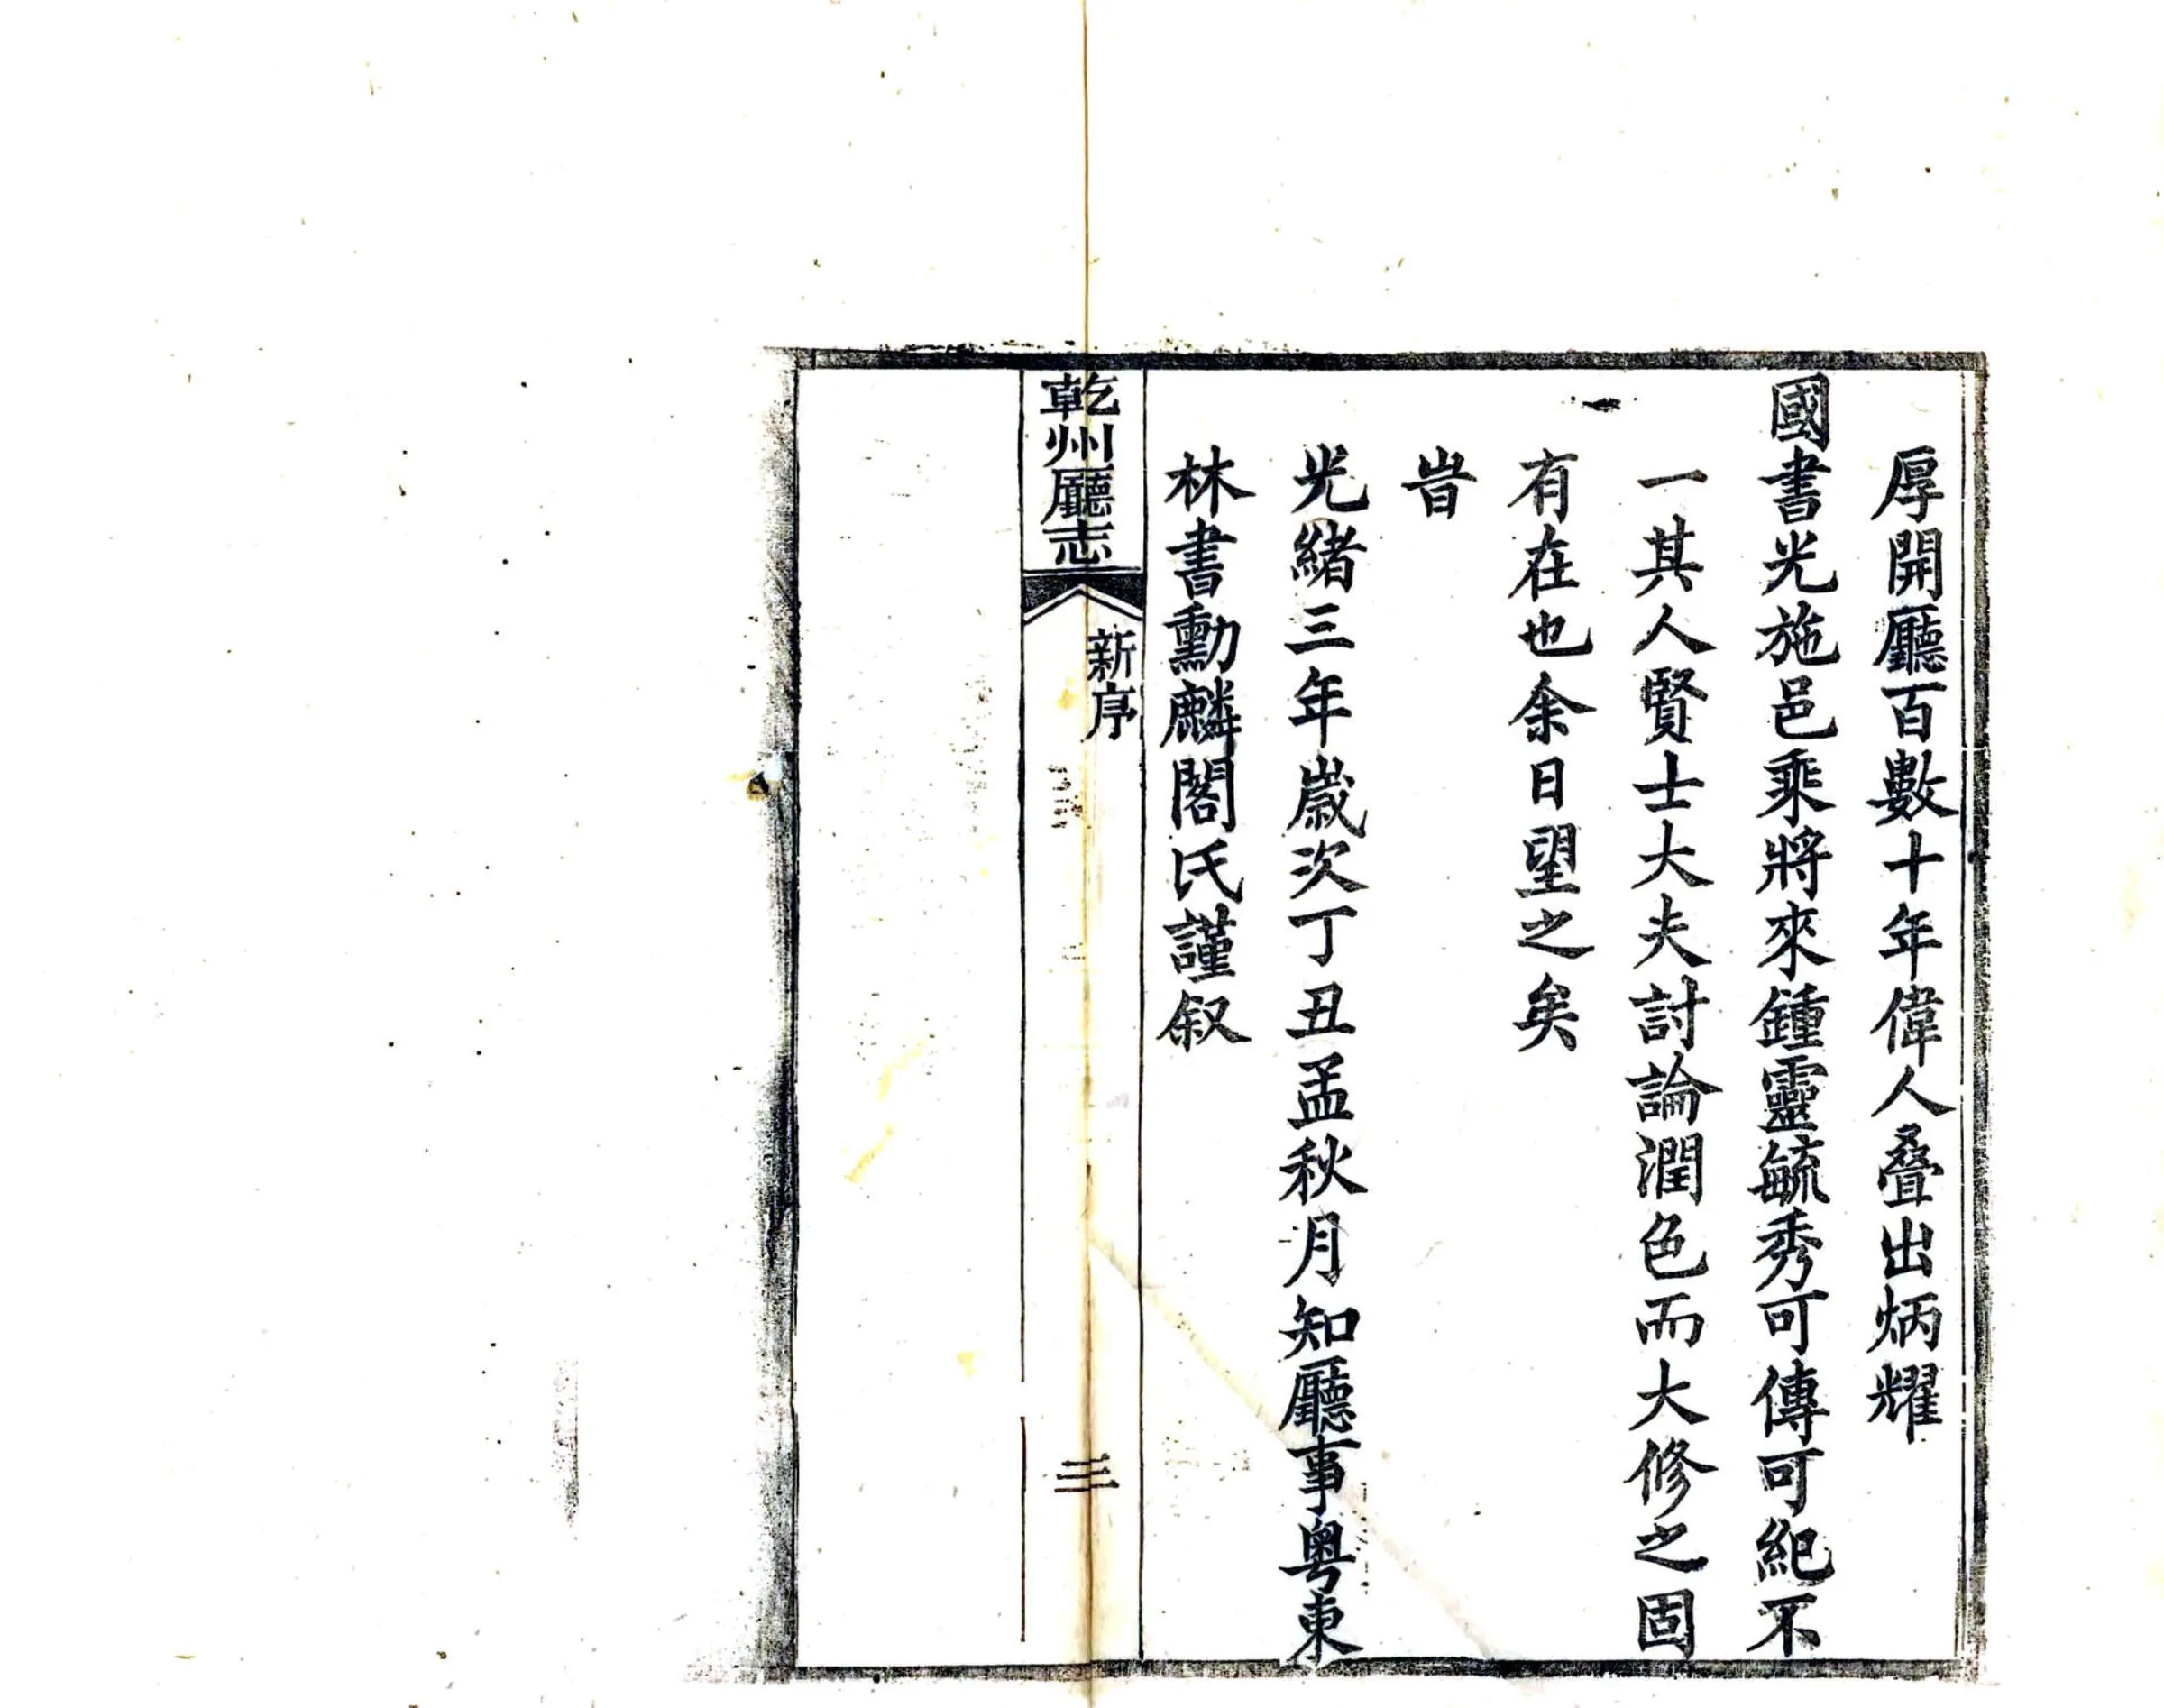 厚開廳百數十年偉人叠出炳耀
國書光施邑乘將來鍾靈毓秀可傳可紀不
一其人賢士大夫討論潤色而大修之固
有在也余日望之矣
旹
光緒三年歲次丁丑孟秋月知廳事粵東
林書勳麟閣氏謹叙
乾州廳志
新序
三